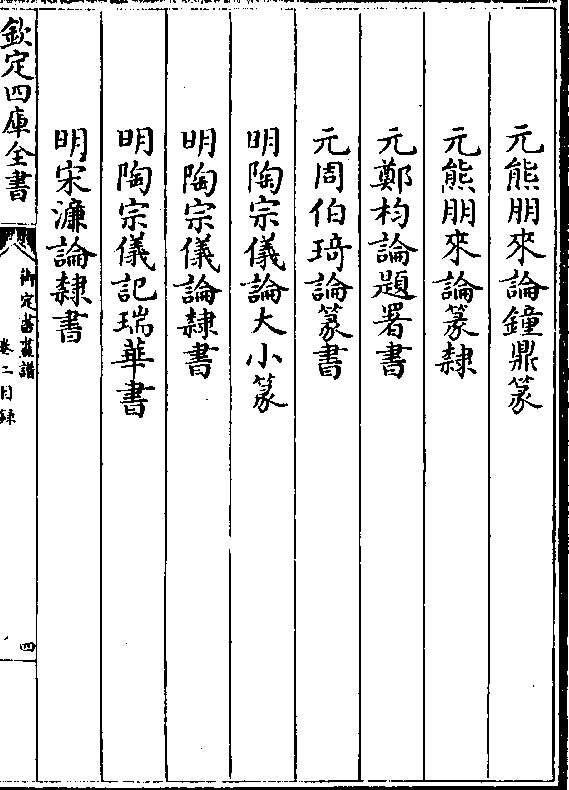 元熊朋來論鐘鼎篆
元熊朋來論篆隸
元鄭杓論題署書
元周伯琦論篆書
明陶宗儀論大小篆
明陶宗儀論隸書
明陶宗儀記瑞華書
明宋濂論隸書
欽定四庫全書
御定書畫譜
卷二目録
四